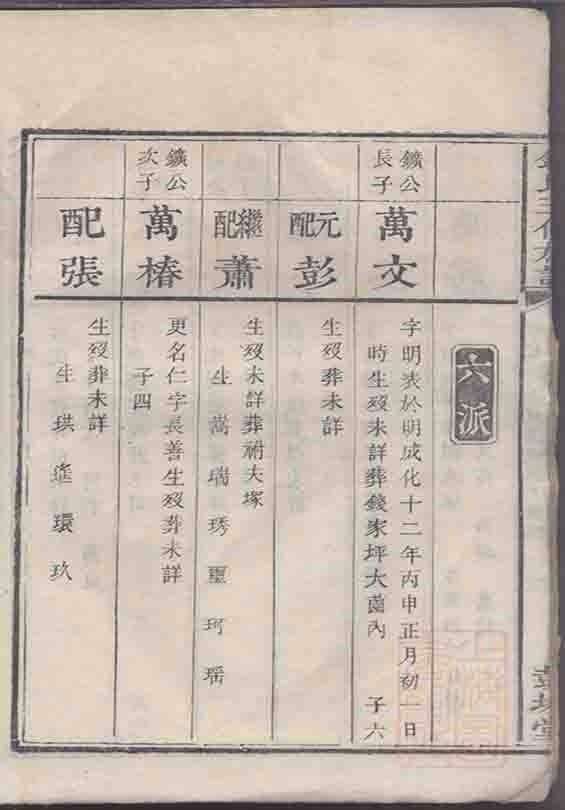 六派
鑛公長子
萬文
字明表於明成化十二年丙申正月初一日
時生歿未詳葬錢家坪大菌內 子六
元配彭
生歿葬未詳
繼配蕭
生歿未詳葬祔夫塚
生 嵩 瑞 琇 璽 珂 瑶
鑛公次子
萬椿
更名仁字長善生歿葬未詳
子四
配張
生歿葬未詳
生 珙 瑝 環 玖